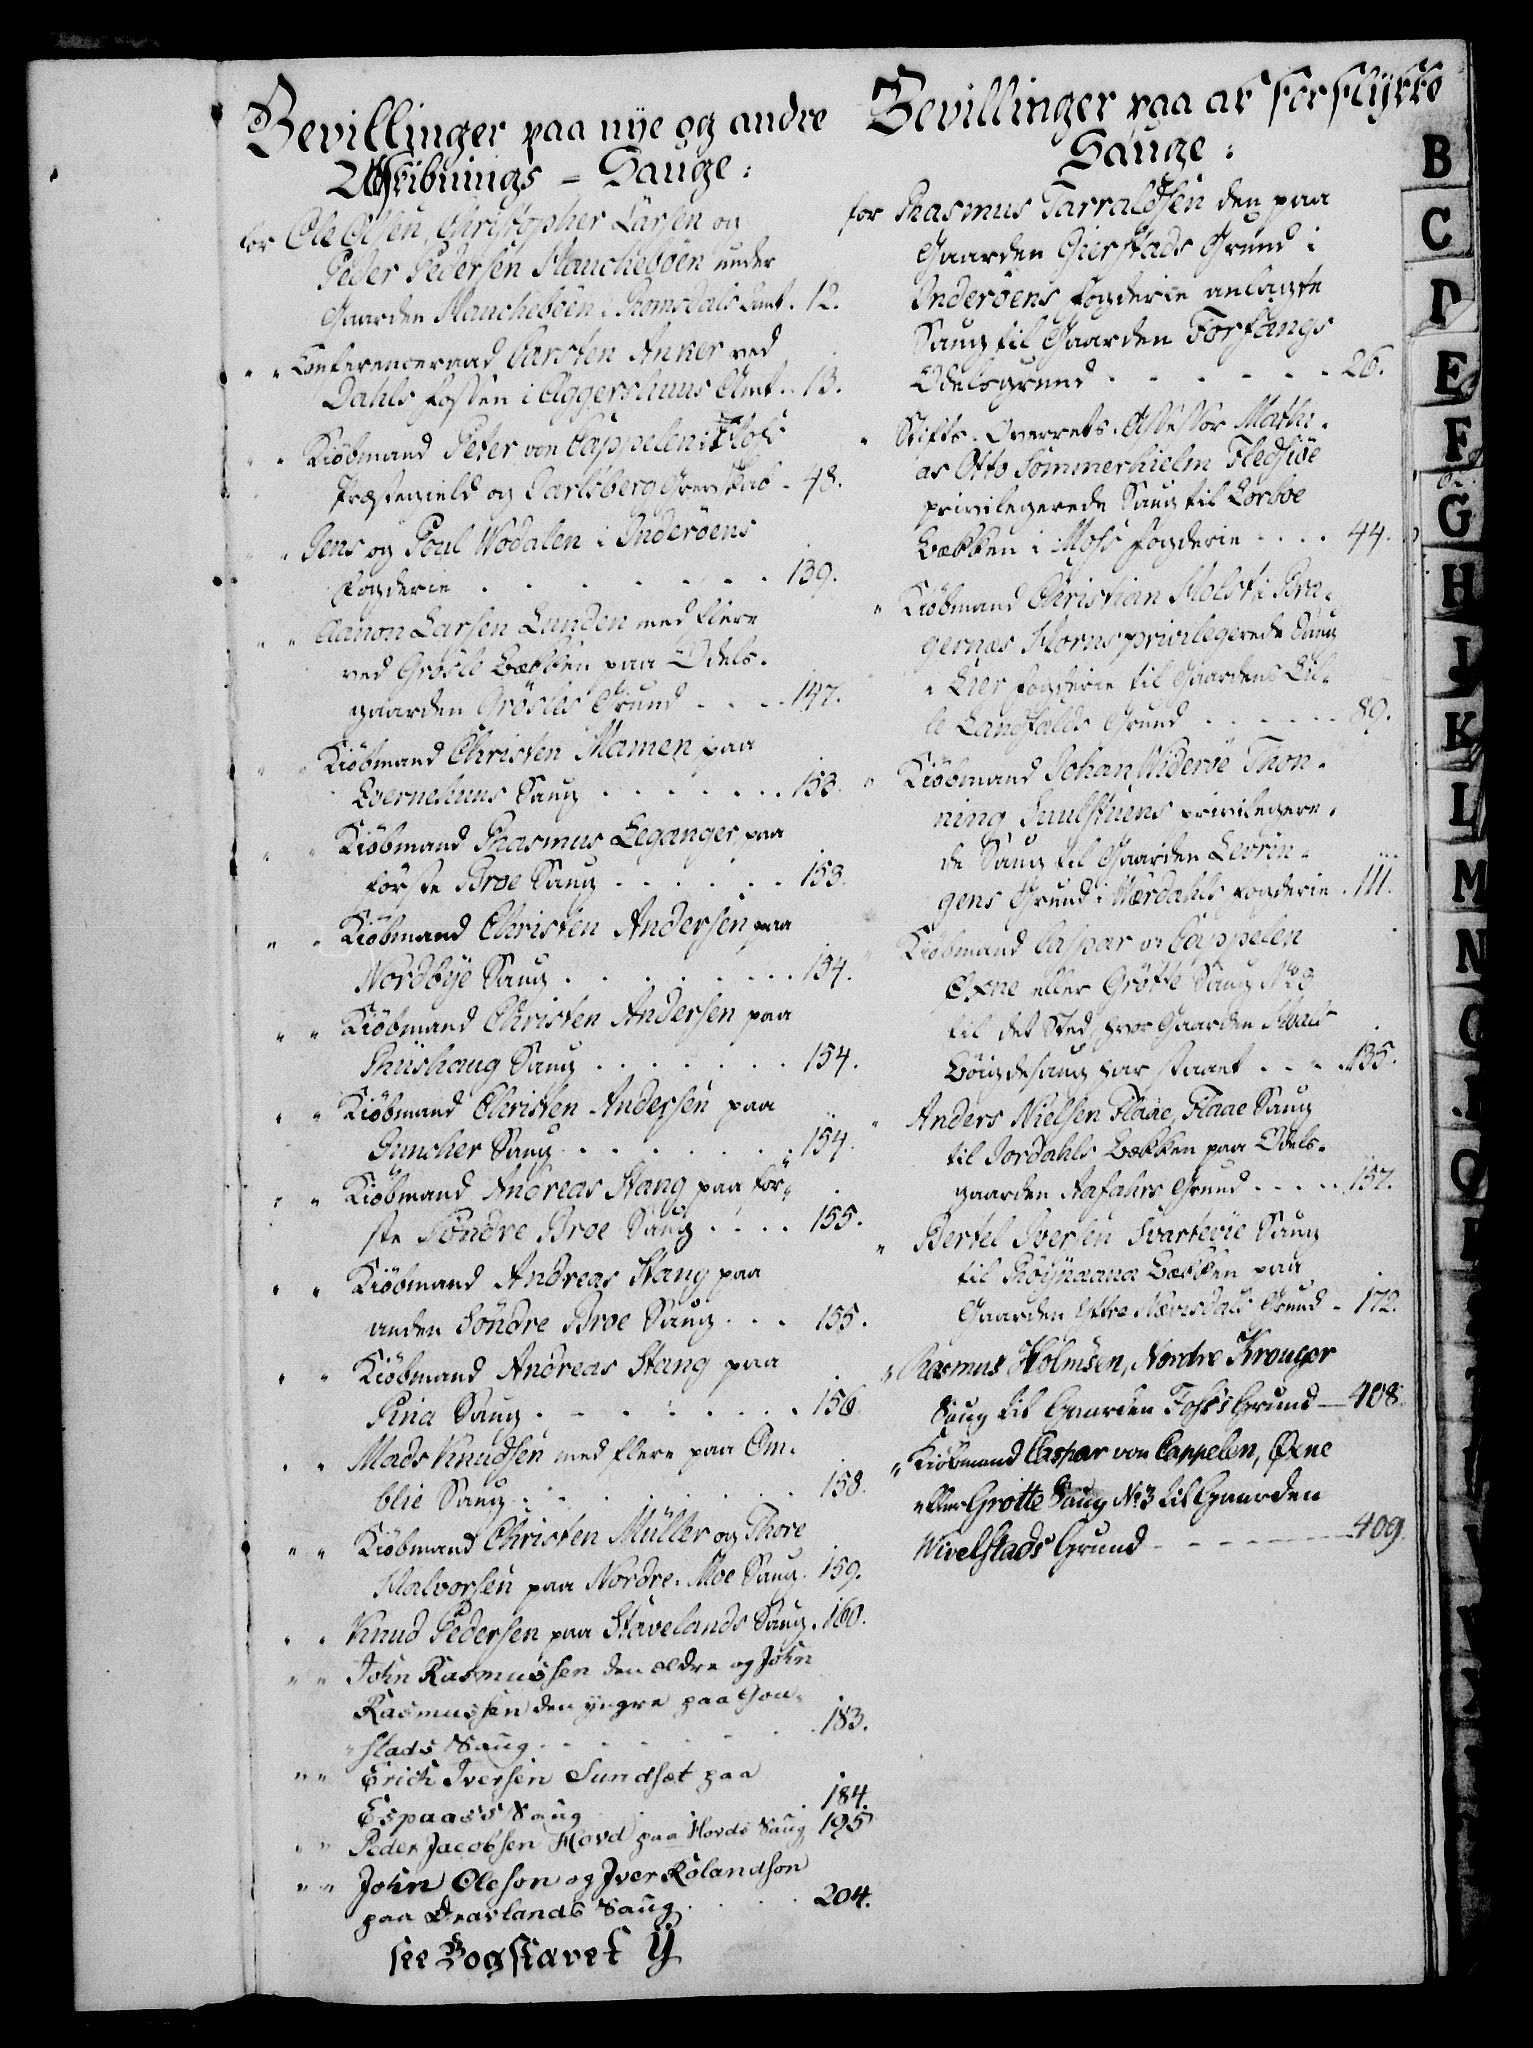 Bevillinger paa nye og andre
Udskibnings-Sauge:
for Ole Olsen, Christopher Larsen og
Peder Pedersen Hauchebøen under
Gaarden Hauchebøen i Romsdals Amt. 12.
" " Conferenceraad Carsten Anker ved
Dahls fossen i Aggershuus Amt. 13.
" " Kiöbmand Peter von Cappelen i
Præstegield og Carlsberg Grevskab. 48.
" " Jens og Poul Wodalen i Inderöens
Fogderie . . . . . . . . 139.
" " Aanon Larsen Lunden med flere
ved Grösle Bækken paa Odels-
gaarden Grösles Grund . . . . 147.
" " Kiöbmand Christen Mamen paa
Qvernehuus Saug . . . . . . . 153.
" " Kiöbmand Rasmus Leganger paa
förste Broe Saug . . . . . . 153.
" " Kiöbmand Christen Andersen paa
Nordbye Saug . . . . . . . . 154.
" " Kiöbmand Christen Andersen paa
Riishaug Saug . . . . . . . 154.
" " Kiöbmand Christen Andersen paa
Juncher Saug . . . . . . . 154.
" " Kiöbmand Andreas Stang paa för-
ste Söndre Broe Saug . . . . 155.
" " Kiöbmand Andreas Stang paa
anden Söndre Broe Saug . . . 155.
" " Kiöbmand Andreas Stang paa
Pina Saug . . . . . . . . 156.
" " Mads Knudsen med flere paa Om-
blie Saug . . . . . . . . 158.
" " Kiöbmand Christen Müller og Thore
Halvorsen paa Nordre Moe Saug. 159.
" " Knud Pedersen paa Stavelands Saug. 160.
" " John Rasmussen den ældre og John
Rasmussen den yngre paa Gou-
stads Saug . . . . . . 183.
" " Erick Iversen Sundset paa
Espaass Saug . 184.
" " Peder Jacobsen Hovd paa Hovds Saug 195
" " John Oleson og Iver Rolandson
paa Dravlands Saug . . . 204.
see Bogstavet Y
Bevillinger paa at forflytte
Sauge:
for Rasmus Tarraldsen den paa
Gaarden Gierstads Grund i
Inderöens Fogderie anlagte
Saug til Gaarden Forfangs
Odelsgrund . . . . . . . 26.
" Stifts-Overrets-Assessor Mathi-
as Otto Sommerhielm Fledsiöe
privilegerede Saug til
Bækken i Moss Fogderie . . . . 44.
" Kiöbmand Christian Holst i Bra-
gernæs Horns privilegerede Saug
i Lier Fogderie til Gaardens Lil-
le Landfalds Grund . . . . . . 89.
" Kiöbmand Johan Wideröe Thon-
ning privilegere-
de Saug til Gaarden Levrin-
gens Grund i Værdahls Fogderie . 111.
" Kiöbmand Caspar v. Cappelen
Oxne eller Grötte Saug No 9
til det Sted, hvor Gaarden
Böigdesaug har staaet . . . . 135.
" Anders Nielsen Flaae, Flaae Saug
til Jordahls Bækken paa Odels-
gaarden Aafahrs Grund . . . . . 157.
" Bertel Iversen Svartevie Saug
til Röynaana Bækken paa
Gaarden Yttre Næverdals Grund . 172.
" Rasmus Holmsen, Nordre Krouger
Saug til Gaarden Foss's Grund — 408.
" Kiöbmand Caspar von Cappelen, Oxne
eller Grotte Saug No 3 til Gaarden
Wivelstads Grund - - - - - - - 409.
B
C
D
E
F
G
H
I
K
L
M
N
O